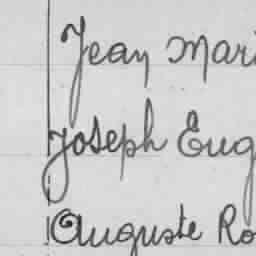 Jean Mari
Joseph Eug
Auguste Ro